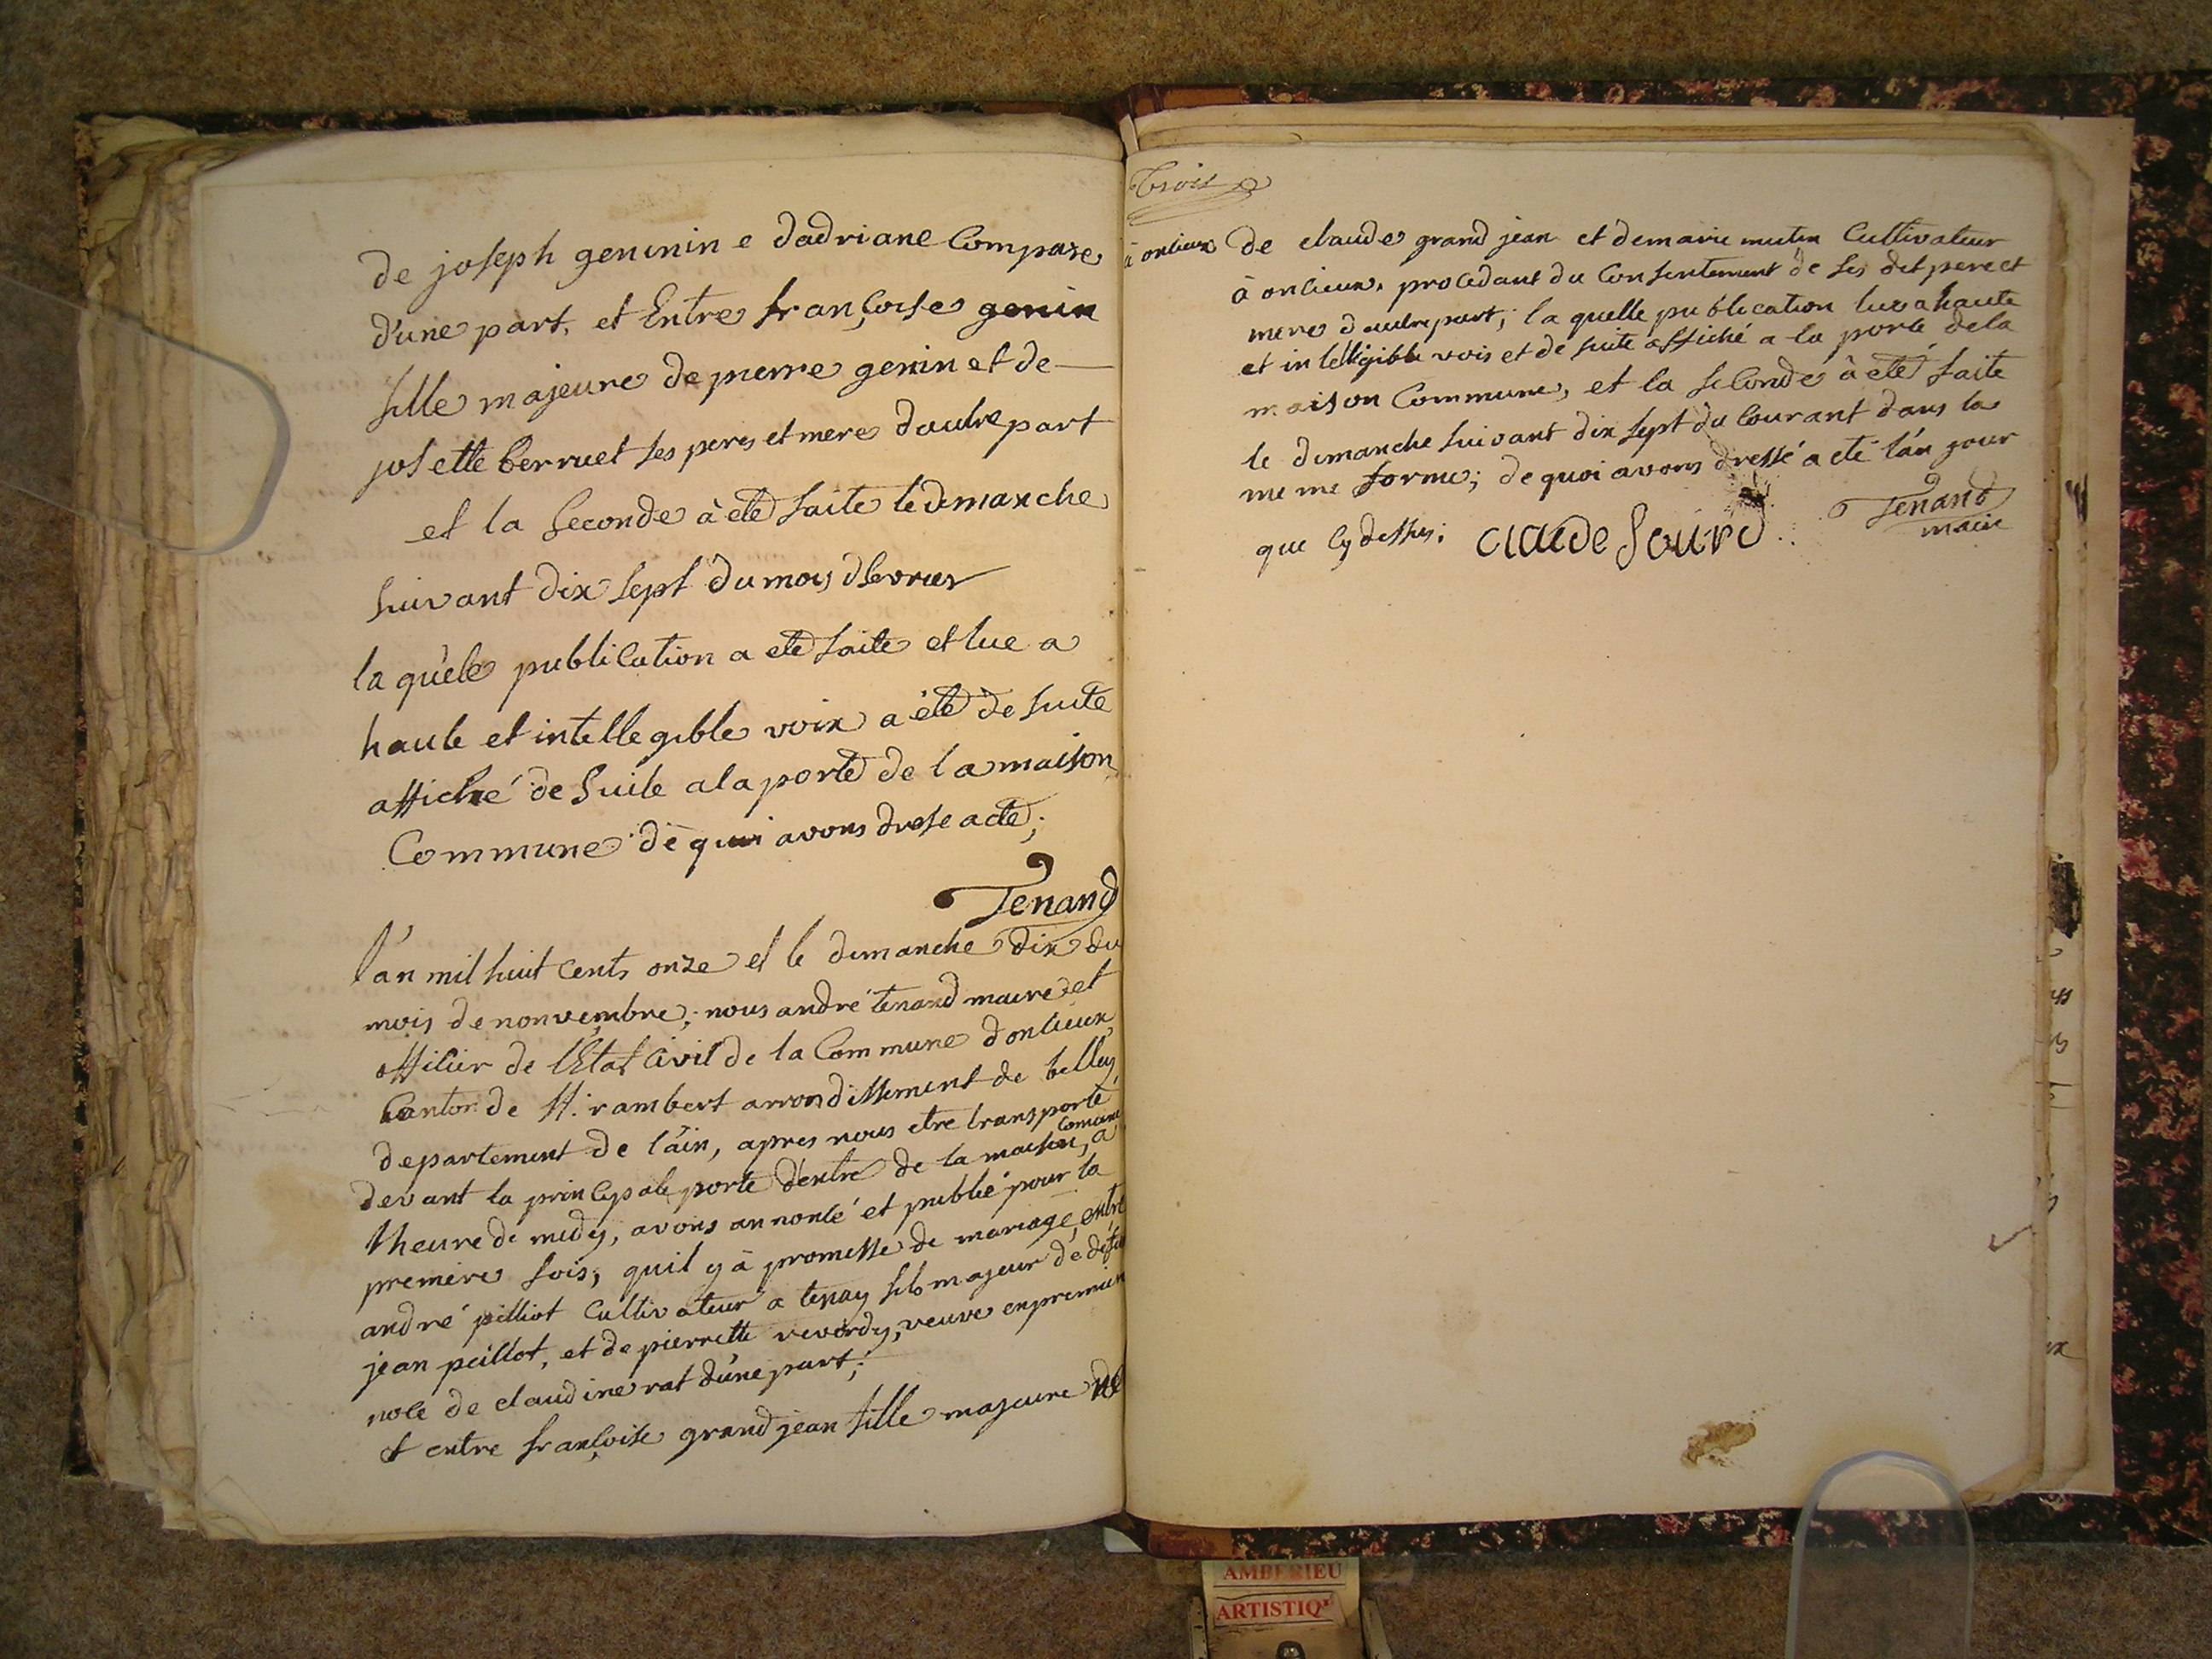 de joseph geninin e dadriane Compare
d'une part, et Entre françoise genin
fille majeure de pierre genin et de
josette berruet ses peres et mere dautre part
et la seconde à eté faite le dimanche
suivant dix sept du mois
la quele publication a eté faite et lue a
haute et intellegible voix a été de suite
affiché de suite a la porte de la maison
Commune de qui avons drese acte;
Tenand
l'an mil huit cents onze et le dimanche dix du
mois de nonvembre; nous andré tenand maire et
officier de l'Etat Civil de la Commune donlieux
Canton de St. rambert arrondissement de belley
departement de l'ain, apres nous etre transporté
devant la principale porte dentre de la maison comune, a
lheure de midy, avons annoncé et publié pour la
premiere fois, quil y à promesse de mariage, entre
andré pilliot Cultivateur a tenay fils majeur de
jean peillot, et de pierrette revordy, veuve en premier
noce de claudine rat d'une part;
et entre françoise grand jean fille majeure de
Trois
à onlieux
de claude grand jean et de marie mutin Cultivateur
à onlieux, procedant du Consentement de ses dit pere et
mere dautre part; la quelle publication lue a haute
et intelligible vois et de suite affiché a la porte dela
maison Commune, et la seconde à eté faite
le dimanche suivant dix sept du Courant dans la
meme forme; de quoi avons dressé acte l'an jour
que cy dessus; claude Sourd Tenand
maire
AMBERIEU
ARTISTIQ